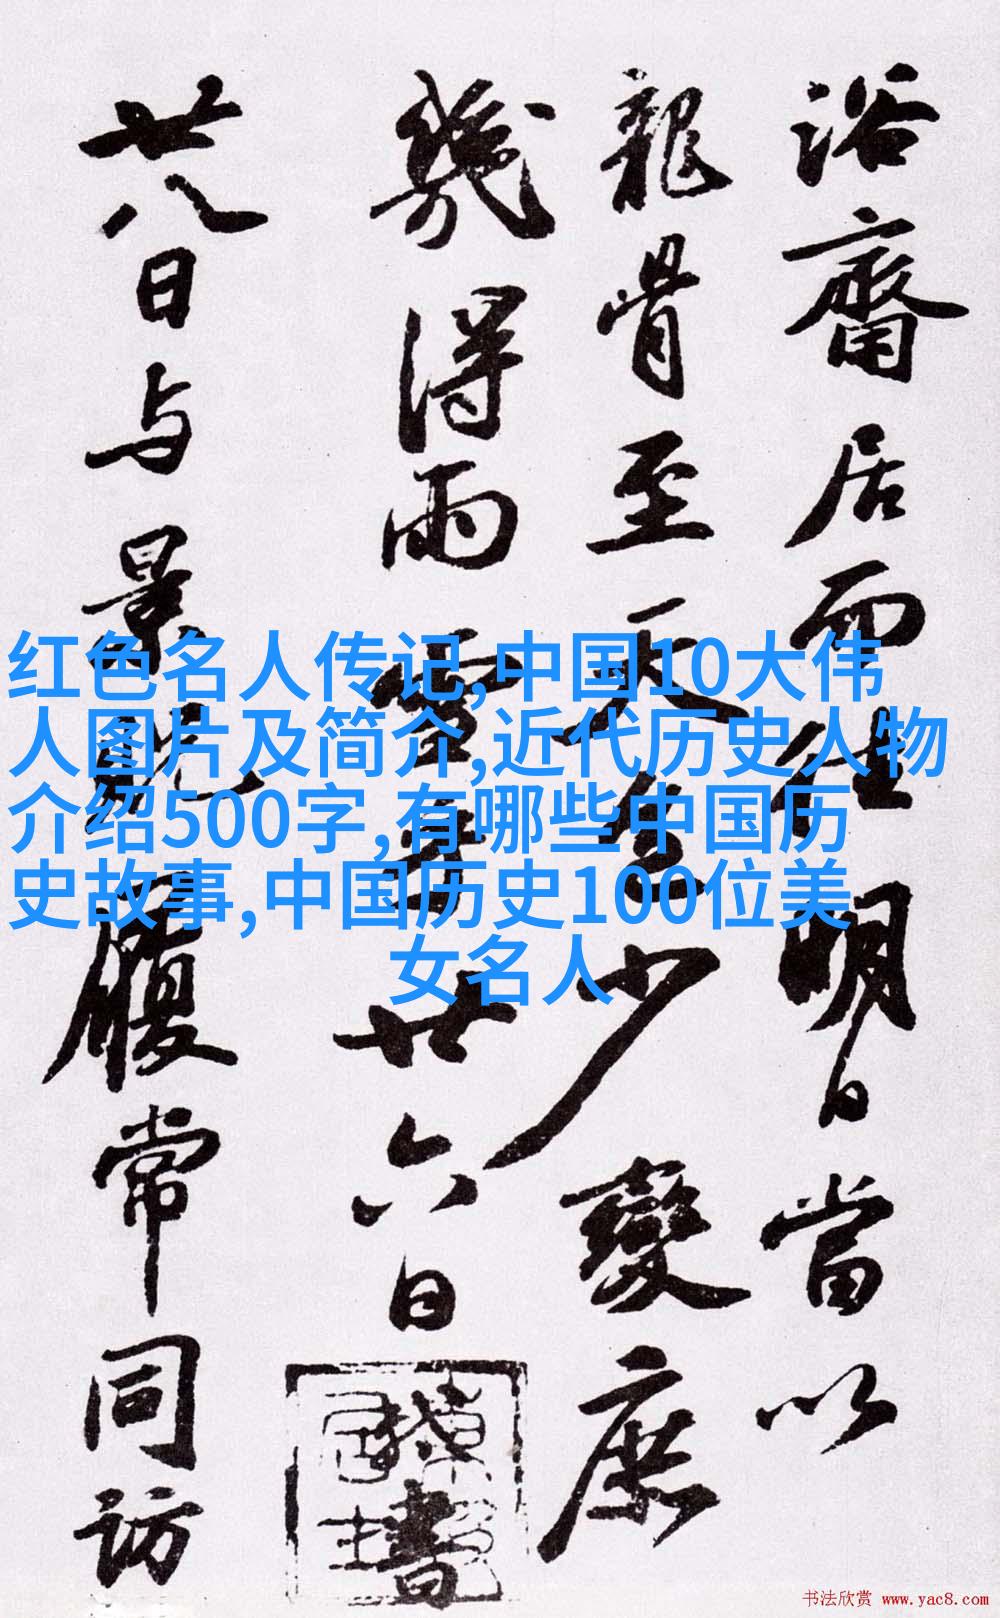 浴齋居而往明日當以
龍骨至天色少變庶
幾得雨雪耳廿六日
書
廿八日与景
履常同訪
红色名人传记,中国10大伟
人图片及简介,近代历史人物
介绍500字,有哪些中国历
史故事,中国历史100位美
女名人
书法欣赏 www.yac8.com